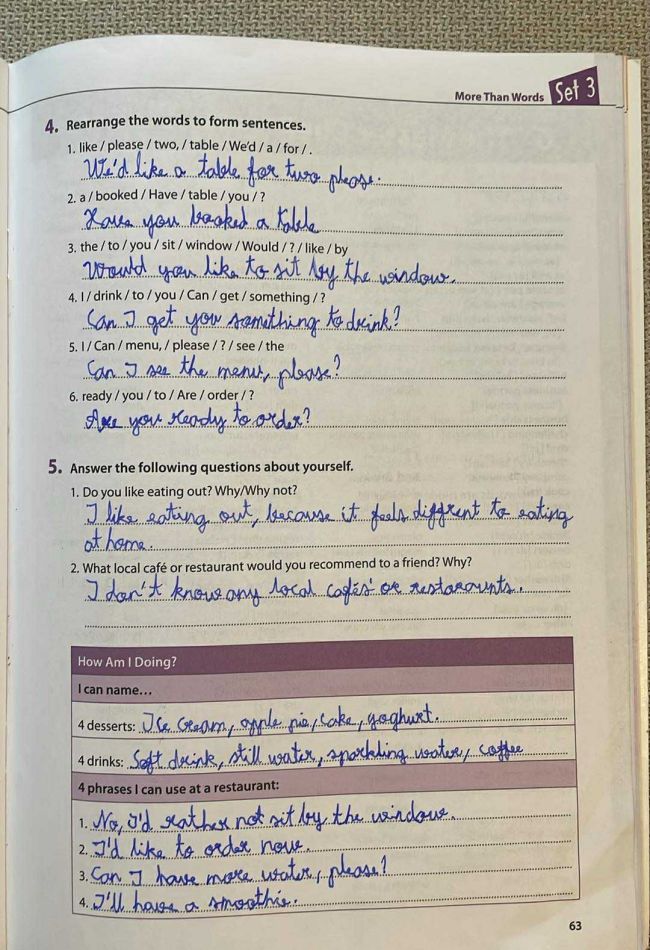 More Than Words Set 3
4. Rearrange the words to form sentences.
1. like / please / two, / table / We'd / a / for / .
We'd like a table for two please.
2. a / booked / Have / table / you / ?
Have you booked a table
3. the / to / you / sit / window / Would / ? / like / by
Would you like to sit by the window.
4. I / drink / to / you / Can / get / something / ?
Can I get you something to drink?
5. I / Can / menu, / please / ? / see / the
Can I see the menu, please?
6. ready / you / to / Are / order / ?
Are you ready to order?
5. Answer the following questions about yourself.
1. Do you like eating out? Why/Why not?
I like eating out, because it feels diffrent to eating
at home.
2. What local café or restaurant would you recommend to a friend? Why?
I don't know any local cafés' or restaraunts.
How Am I Doing?
I can name...
4 desserts: Ice cream, apple pie, cake, yoghurt.
4 drinks: Soft drink, still water, sparkling water, coffee
4 phrases I can use at a restaurant:
1. No, I'd rather not sit by the window.
2. I'd like to order now.
3. Can I have more water, please?
4. I'll have a smoothie.
63